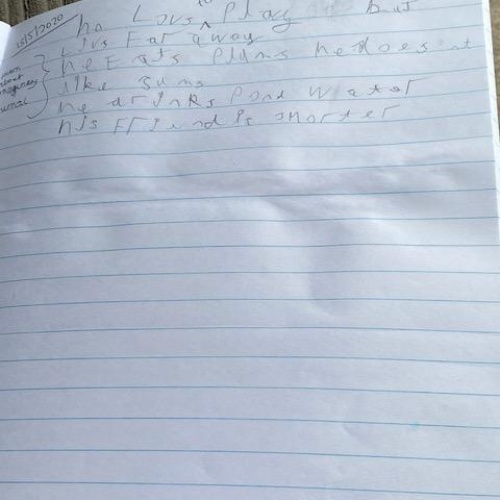 to
18/5/2020 ho Lovs ^ Play but
Livs Far away
he Eats Plums he does nt
like Sums
he drinks Pond Water
his FFiend is smorter